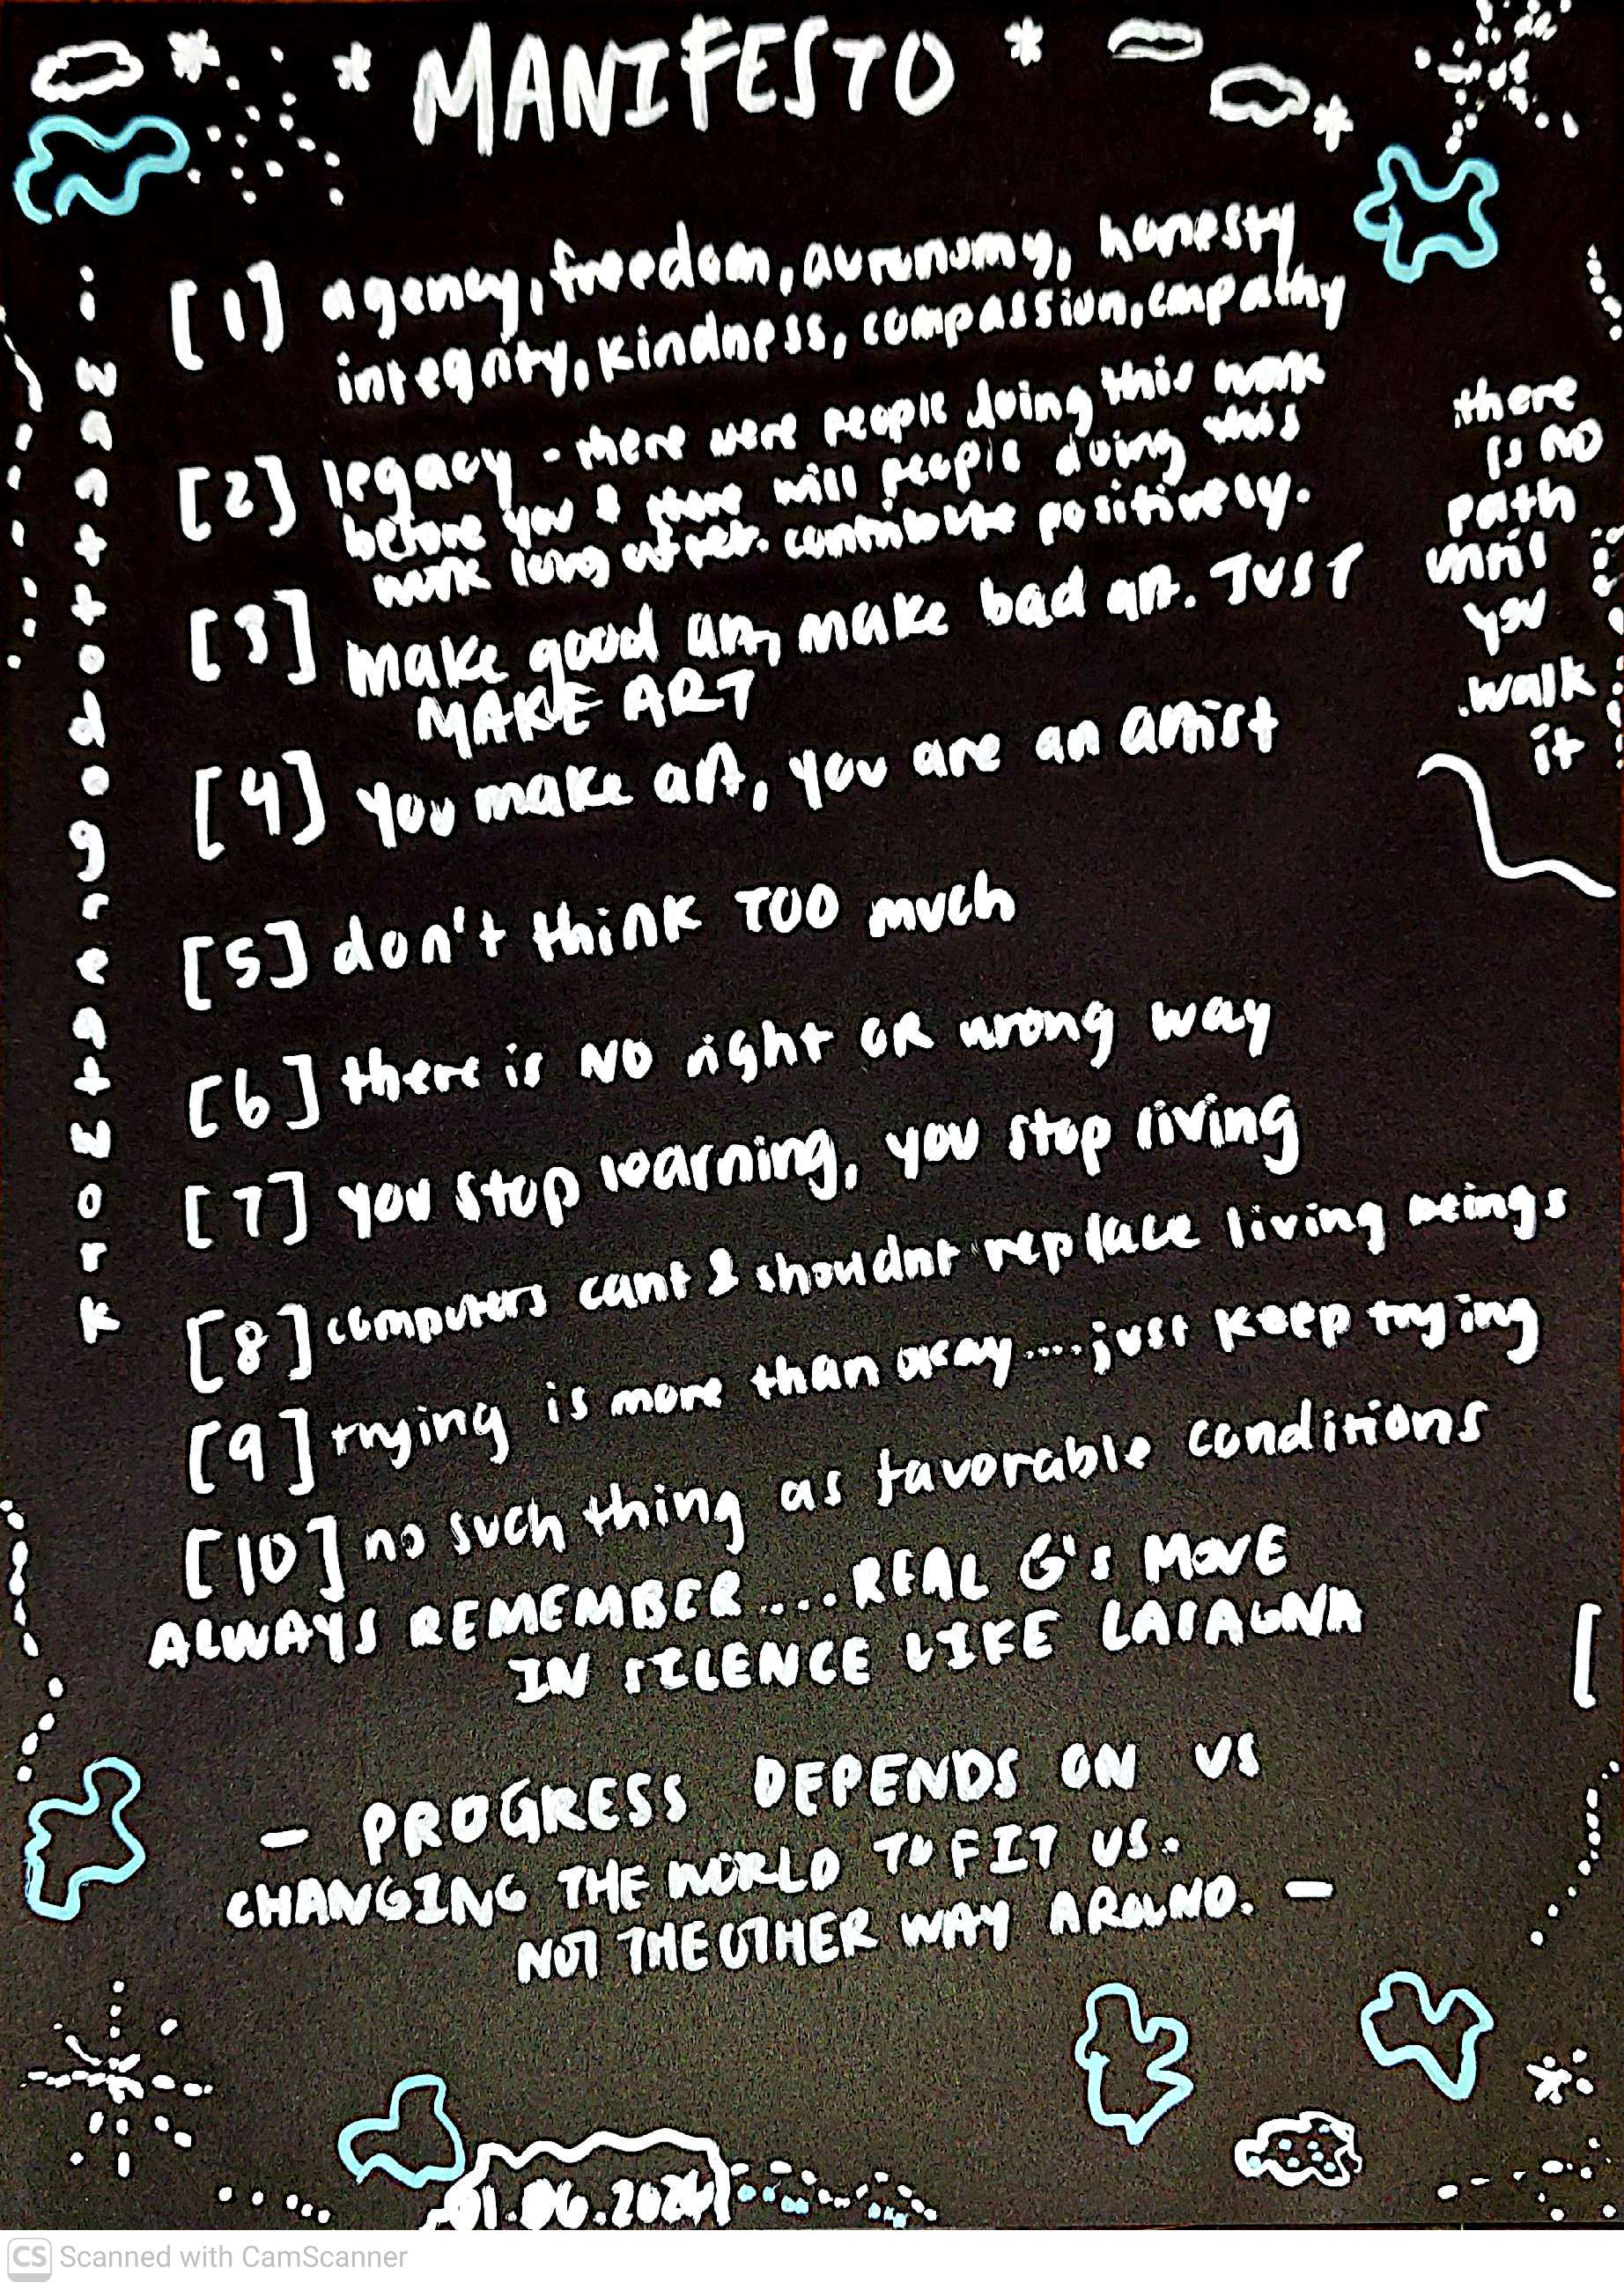 MANIFESTO
[1] agency, freedom, autonomy, honesty
integrity, kindness, compassion, empathy
[2] legacy - there were people doing this work
before you & there will people doing this
work long after. contribute positively.
[3] make good art, make bad art. JUST
MAKE ART
[4] you make art, you are an artist
[5] don't think TOO much
[6] there is NO right OR wrong way
[7] you stop learning, you stop living
[8] computers cant & shouldnt replace living beings
[9] trying is more than okay....just keep trying
[10] no such thing as favorable conditions
ALWAYS REMEMBER....REAL G's MOVE
IN SILENCE LIKE LASAGNA
- PROGRESS DEPENDS ON US
CHANGING THE WORLD TO FIT US.
NOT THE OTHER WAY AROUND. -
iwanttodogreatwork
there
is NO
path
until
you
walk
it
01.06.2026
CS Scanned with CamScanner